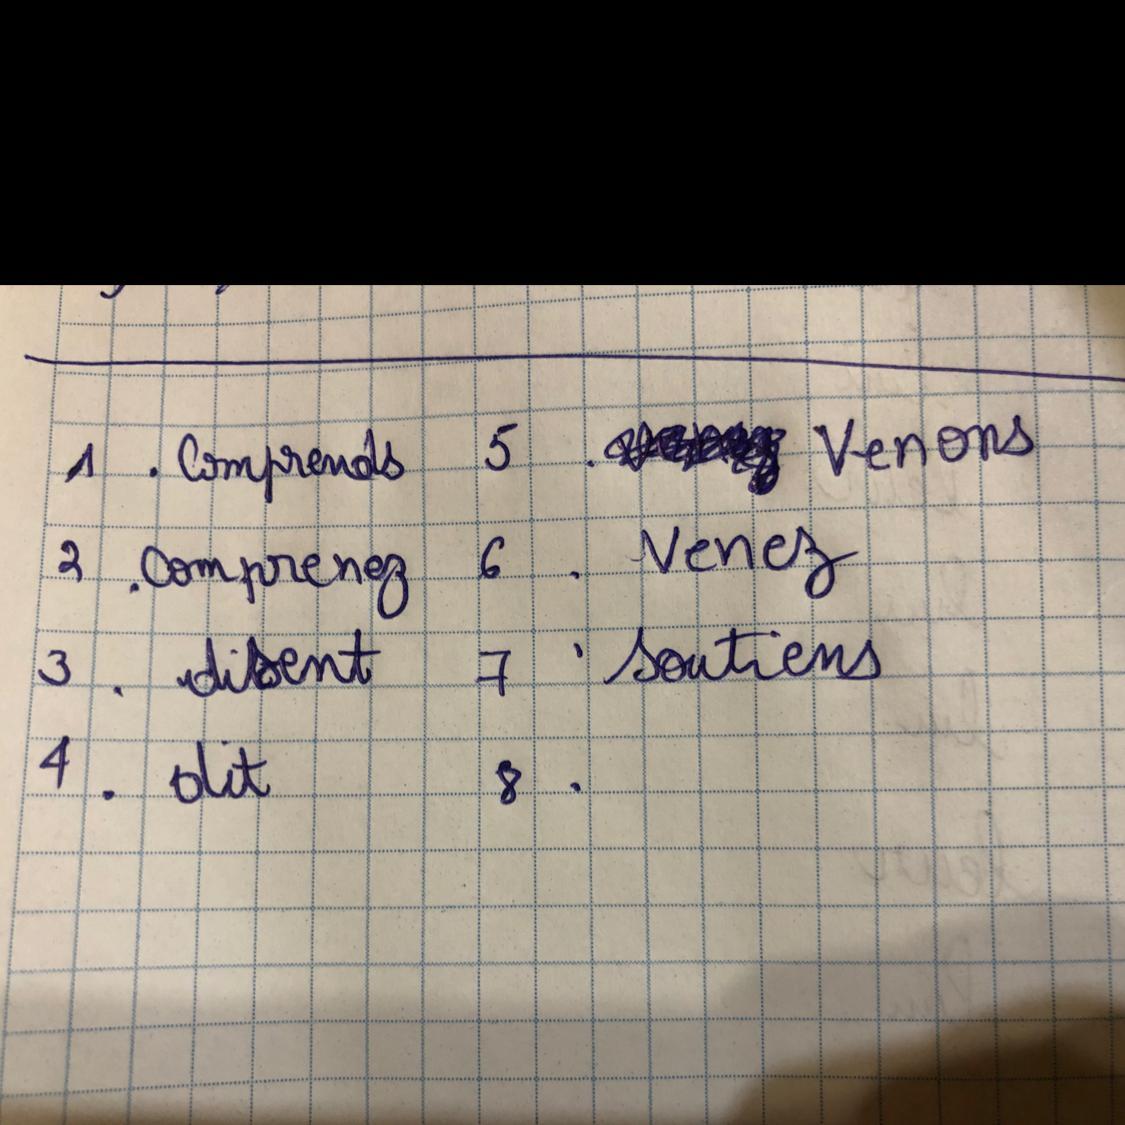 1 . Comprends 5 . Venons
2 . Comprenez 6 . Venez
3 . disent 7 . Soutiens
4 . dit 8 .